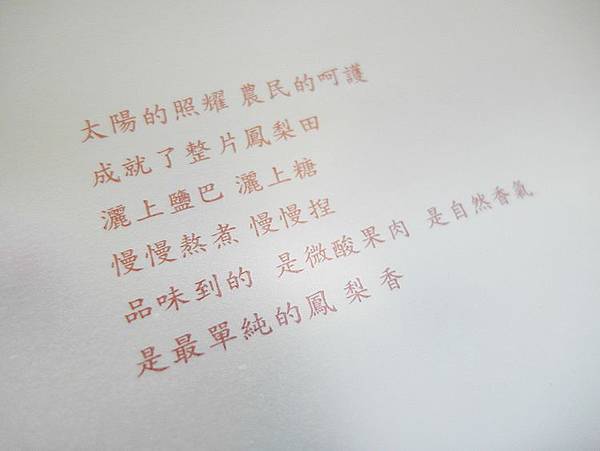 太陽的照耀 農民的呵護
成就了整片鳳梨田
灑上鹽巴 灑上糖
慢慢熬煮 慢慢捏
品味到的 是微酸果肉 是自然香氣
是最單純的鳳梨香